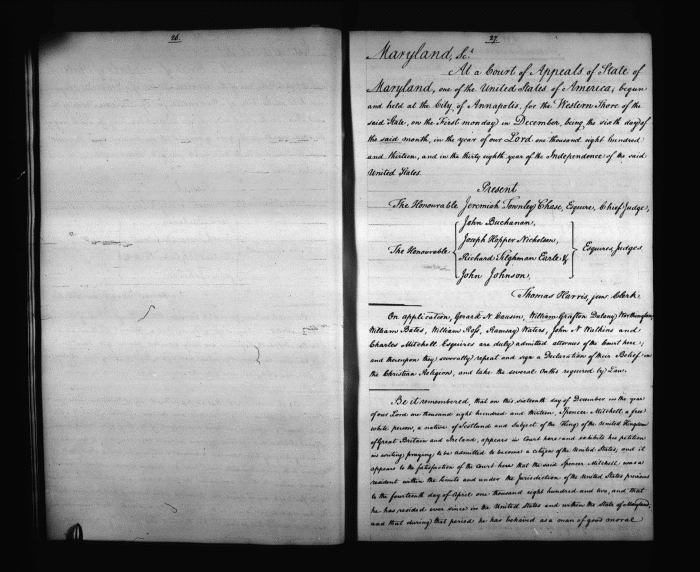 26.
27.
Maryland, Sc.t
At a Court of Appeals of State of
Maryland, one of the United States of America, begun
and held at the City of Annapolis, for the Western Shore of the
said State, on the First monday in December, being the sixth day of
the said month, in the year of our Lord one thousand eight hundred
and thirteen, and in the thirty eighth year of the Independence of the said
United States.
Present
The Honourable Jeremiah Townley Chase, Esquire, Chief Judge,
John Buchanan,
Joseph Hopper Nicholson,
The Honourable Richard Tilghman Earle & Esquires, Judges.
John Johnson,
Thomas Harris, junr Clerk.
On application, Gerard N. Causin, William Grafton Dulany Worthington,
William Bates, William Ross, Ramsay Waters, John N Watkins and
Charles Mitchell Esquires are duly admitted attornies of the Court here;
and thereupon they severally repeat and sign a Declaration of their Belief in
the Christian Religion, and take the several Oaths required by Law.
Be it remembered, that on this sixteenth day of December in the year
of our Lord one thousand eight hundred and thirteen, Spencer Mitchell a free
white person, a native of Scotland and subject of the King of the United Kingdom
of Great Britain and Ireland, appears in Court here and exhibits his petition
in writing praying to be admitted to become a citizen of the United States; and it
appears to the satisfaction of the Court here that the said Spencer Mitchell was a
resident within the limits and under the Jurisdiction of the United States previous
to the fourteenth day of April one thousand eight hundred and two, and that
he has resided ever since in the United States and within the State of Maryland,
and that during that period he has behaved as a man of good moral